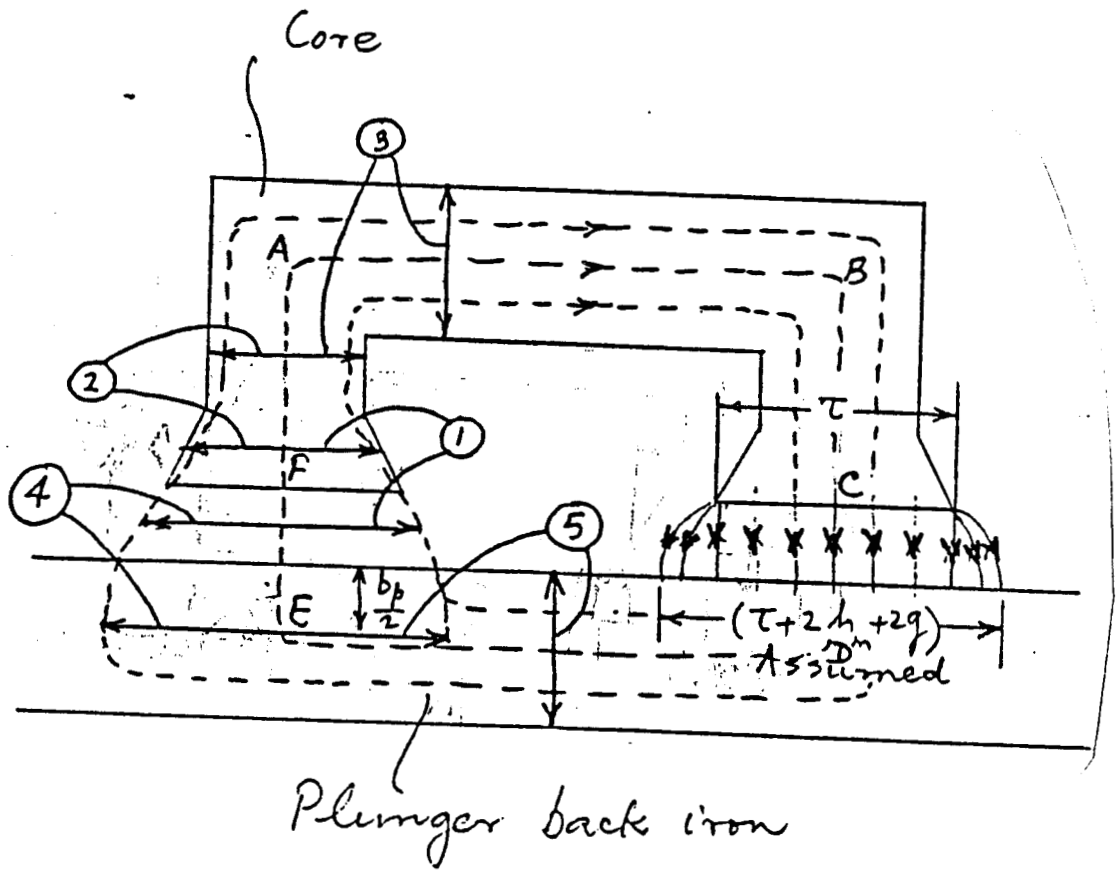 Core
3
A
B
2
τ
1
F
C
4
5
b_p/2
E
(τ+2h+2g)
D^m
Assumed
Plunger back iron